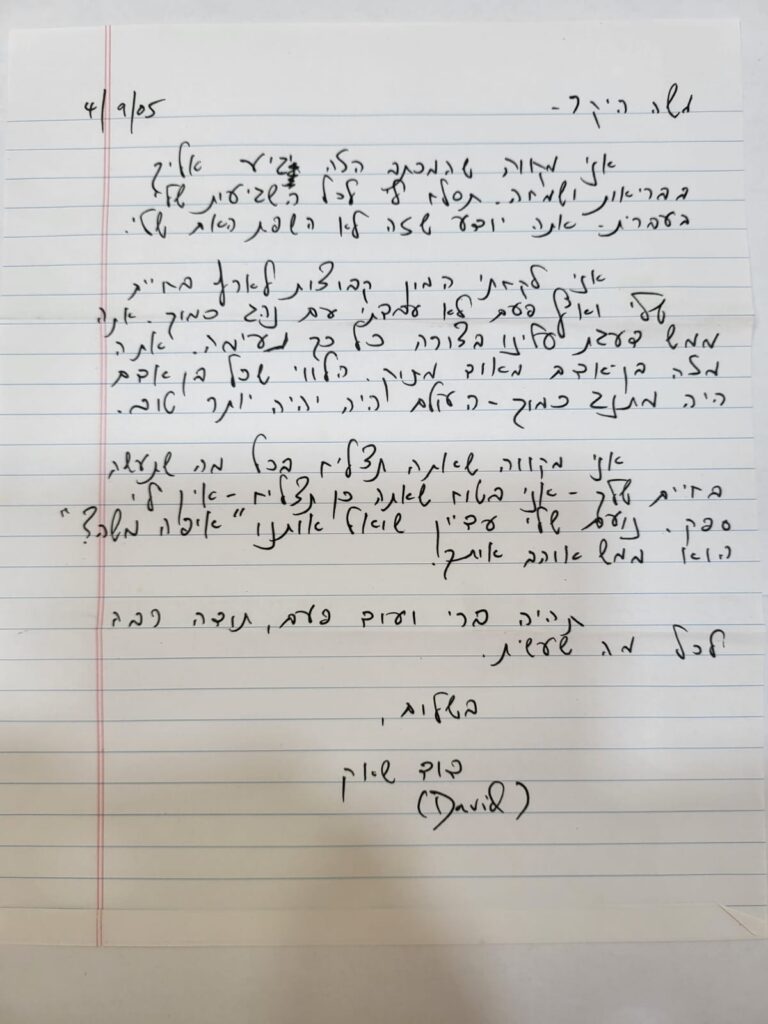 4/9/05
משה היקר -
אני מקווה שהמכתב הזה יגיע אליך
בבריאות ושמחה. תסלח לי לכל השגיעות שלי
בעברית - אתה יודע שזה לא השפת האם שלי.
אני לקחתי המון קבוצות לארץ בחיית
שלי ואף פעם לא עבדתי עם נהג כמוך. אתה
ממש בצורה כל כך נעימה. אתה
בן-אדם מאוד מתוק. הלווי שכל בן אדם
היה מתנהג כמוך - העולם היה יהיה יותר טוב.
אני מקווה שאתה תצליח בכל מה שתעשה
בחיית שלך - אני בטוח שאתה כן תצליח - אין לי
ספק. נועם שלי עדיין שואל אותנו "איפה משה?"
הוא ממש אוהב אותך.
תהיה ברי ועוד פעם, תודה רבה
לכל מה שעשית.
בשלום,
(David)